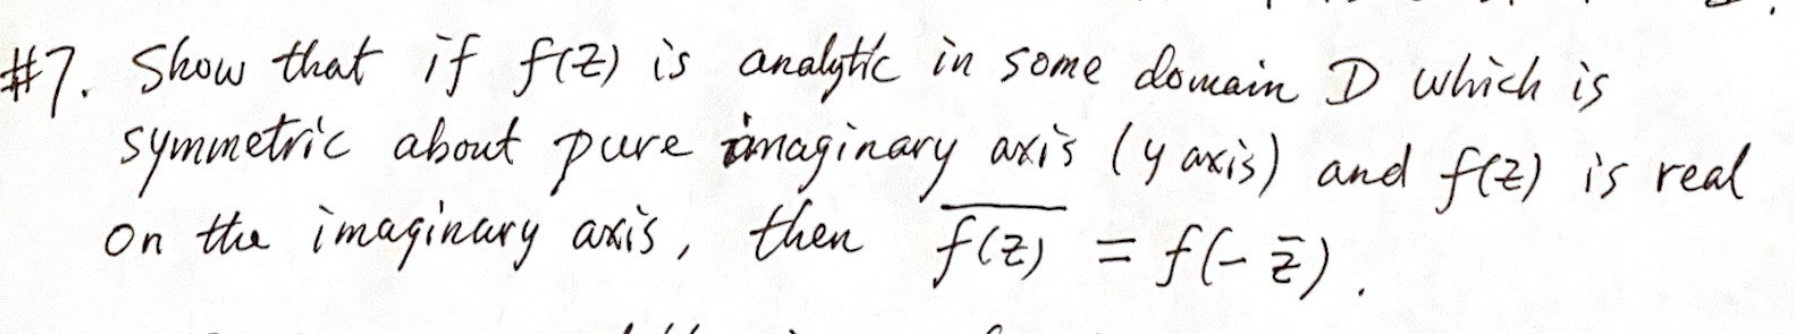 #7. Show that if f(z) is analytic in some domain D which is
symmetric about pure imaginary axis (y axis) and f(z) is real
on the imaginary axis, then \overline{f(z)} = f(-\bar{z}).